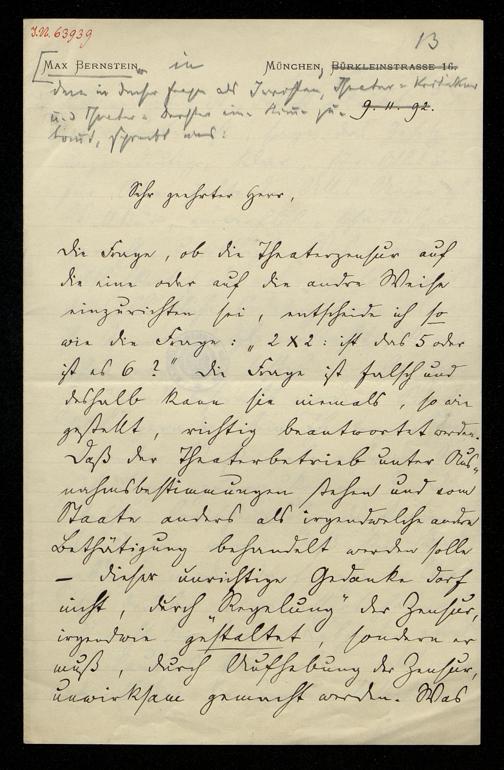 I.N. 63939
13
[MAX BERNSTEIN in MÜNCHEN, BÜRKLEINSTRASSE 16.
dem in dieser Frage als Juristen, Theater-Kritiker
und Theater-Dichter eine Stimme zu- 9. 11. 92.
kommt, schreibt uns:
Sehr geehrter Herr,
Die Frage, ob die Theaterzensur auf
die eine oder auf die andre Weise
einzurichten sei, entscheide ich so
wie die Frage: „2 x 2: ist das 5 oder
ist es 6?" Die Frage ist falsch und
deshalb kann sie niemals, so wie
gestellt, richtig beantwortet werden.
Daß der Theaterbetrieb unter Aus-
nahmsbestimmungen stehen und vom
Staate anders als irgendwelche andre
Bethätigung behandelt werden solle
– dieser unrichtige Gedanke darf
nicht, durch "Regelung" der Zensur,
irgendwie gestaltet, sondern er
muß, durch Aufhebung der Zensur,
unwirksam gemacht werden. Was